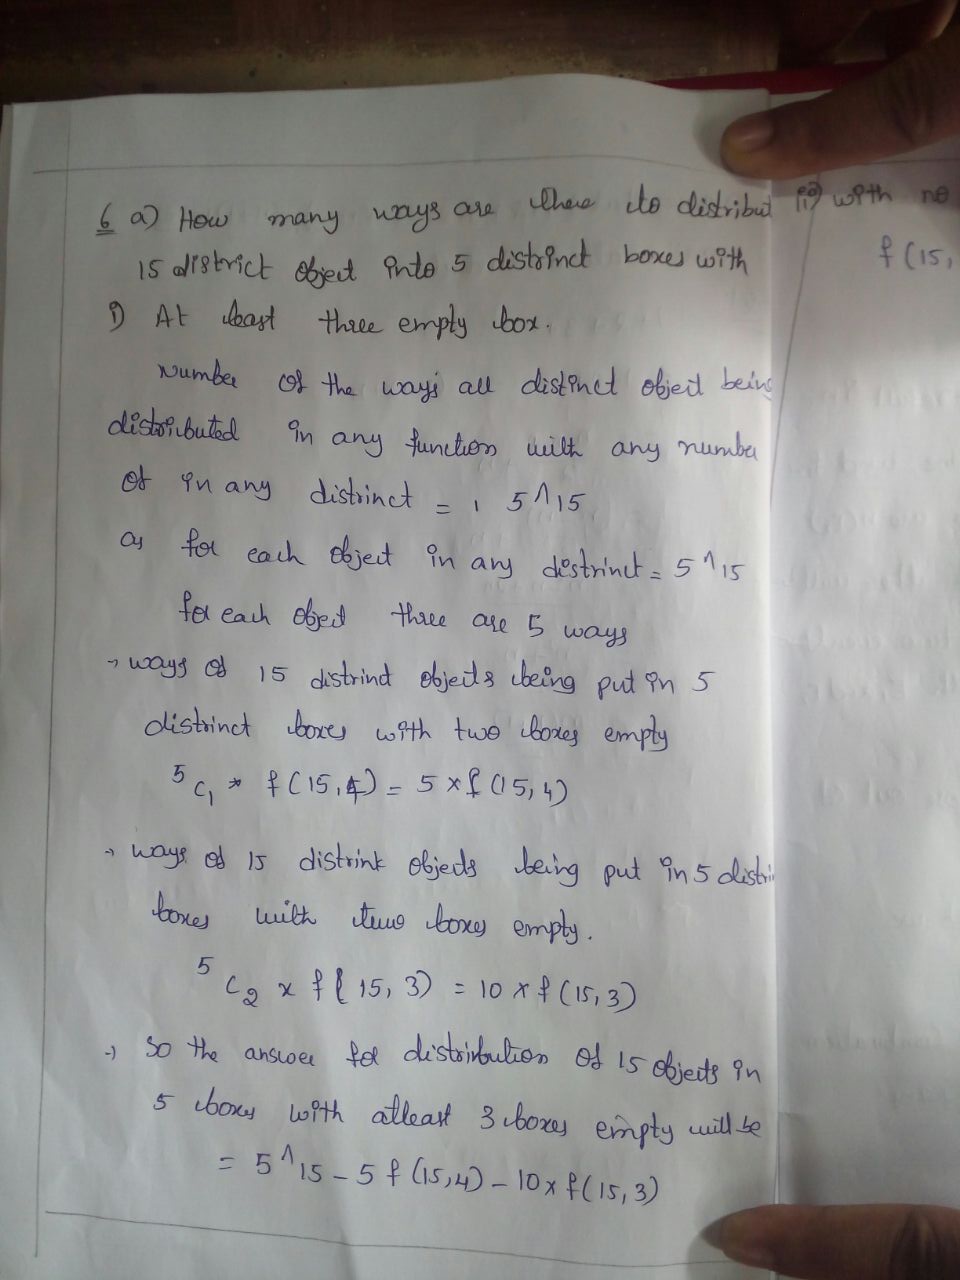 6 a) How many ways are there to distribut
15 district object into 5 distrinct boxes with
i) At least three empty box.
Number of the ways all distinct object being
distributed in any function with any number
of in any distrinct = 1 5^15
as for each object in any distrinct = 5^15
for each object three are 5 ways
→ ways of 15 distrind objects being put in 5
distrinct boxes with two boxes empty
5C1 * f(15,4) = 5 x f(15,4)
→ ways of 15 distrink objects being put in 5 distri
boxes with two boxes empty.
5C2 x f(15,3) = 10 x f(15,3)
→ So the answer for distribution of 15 objects in
5 boxes with atleast 3 boxes empty will be
= 5^15 - 5 f(15,4) - 10 x f(15,3)
ii) with no
f(15,